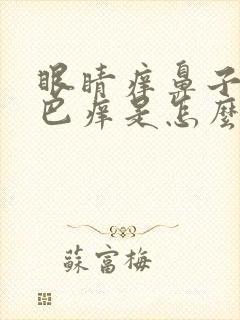 眼睛痒鼻子
巴痒是怎麼
蘇富梅